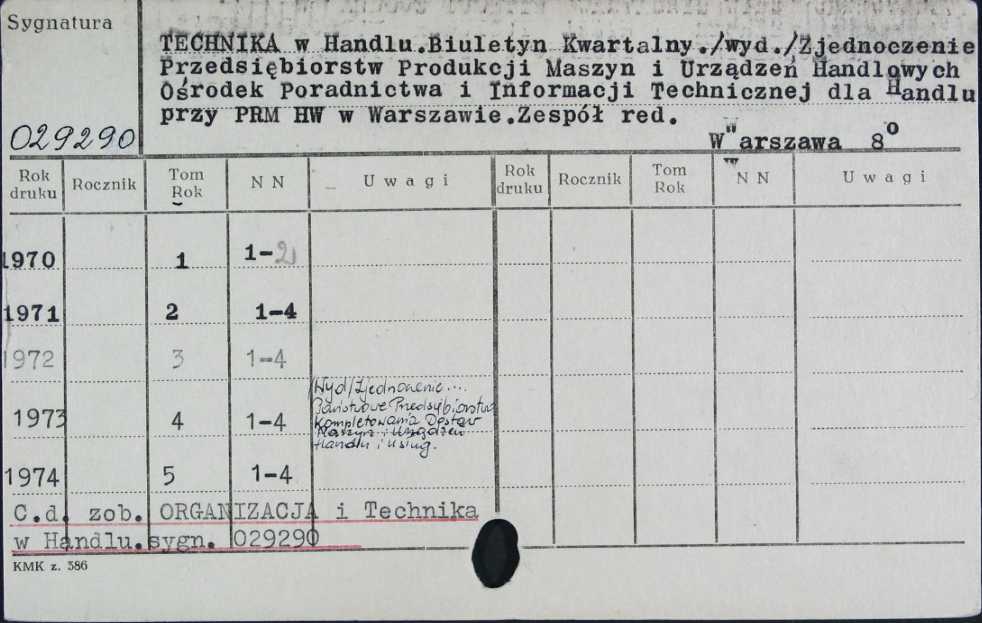 Sygnatura
TECHNIKA w Handlu.Biuletyn Kwartalny./wyd./Zjednoczenie
Przedsiębiorstw Produkcji Maszyn i Urządzeń Handlowych
Ośrodek Poradnictwa i Informacji Technicznej dla Handlu
przy PRM HW w Warszawie.Zespół red.
029290 Warszawa 8°
Rok druku Rocznik Tom Rok N N U w a g i Rok druku Rocznik Tom Rok N N U w a g i
1970 1 1-2
1971 2 1-4
1972 3 1-4
/Wyd/Zjednoczenie...
Państwowe Przedsiębiorstwo
1973 4 1-4 Kompletowania Dostaw
Maszyn i Urządzeń
Handlu i Usług.
1974 5 1-4
C.d. zob. ORGANIZACJA i Technika
w Handlu.sygn. 029290
KMK z. 586